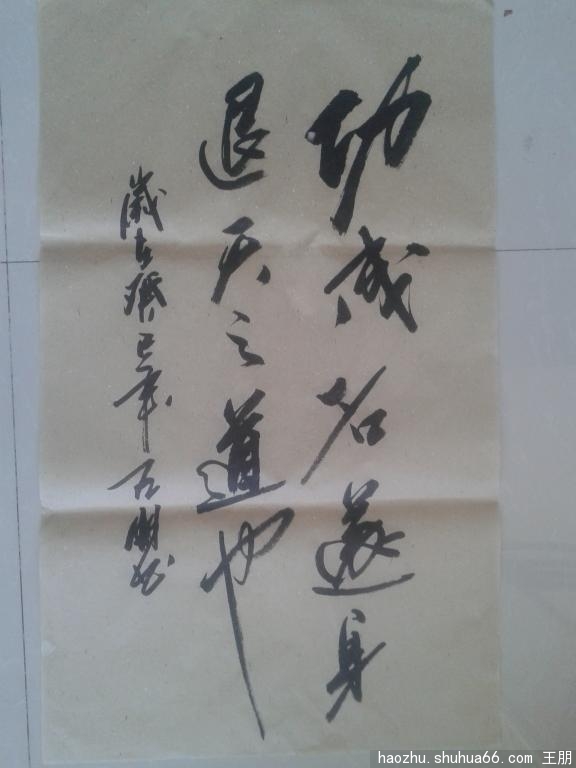 功成名遂身
退天之道也
岁在己年
haozhu.shuhua66.com 王朋